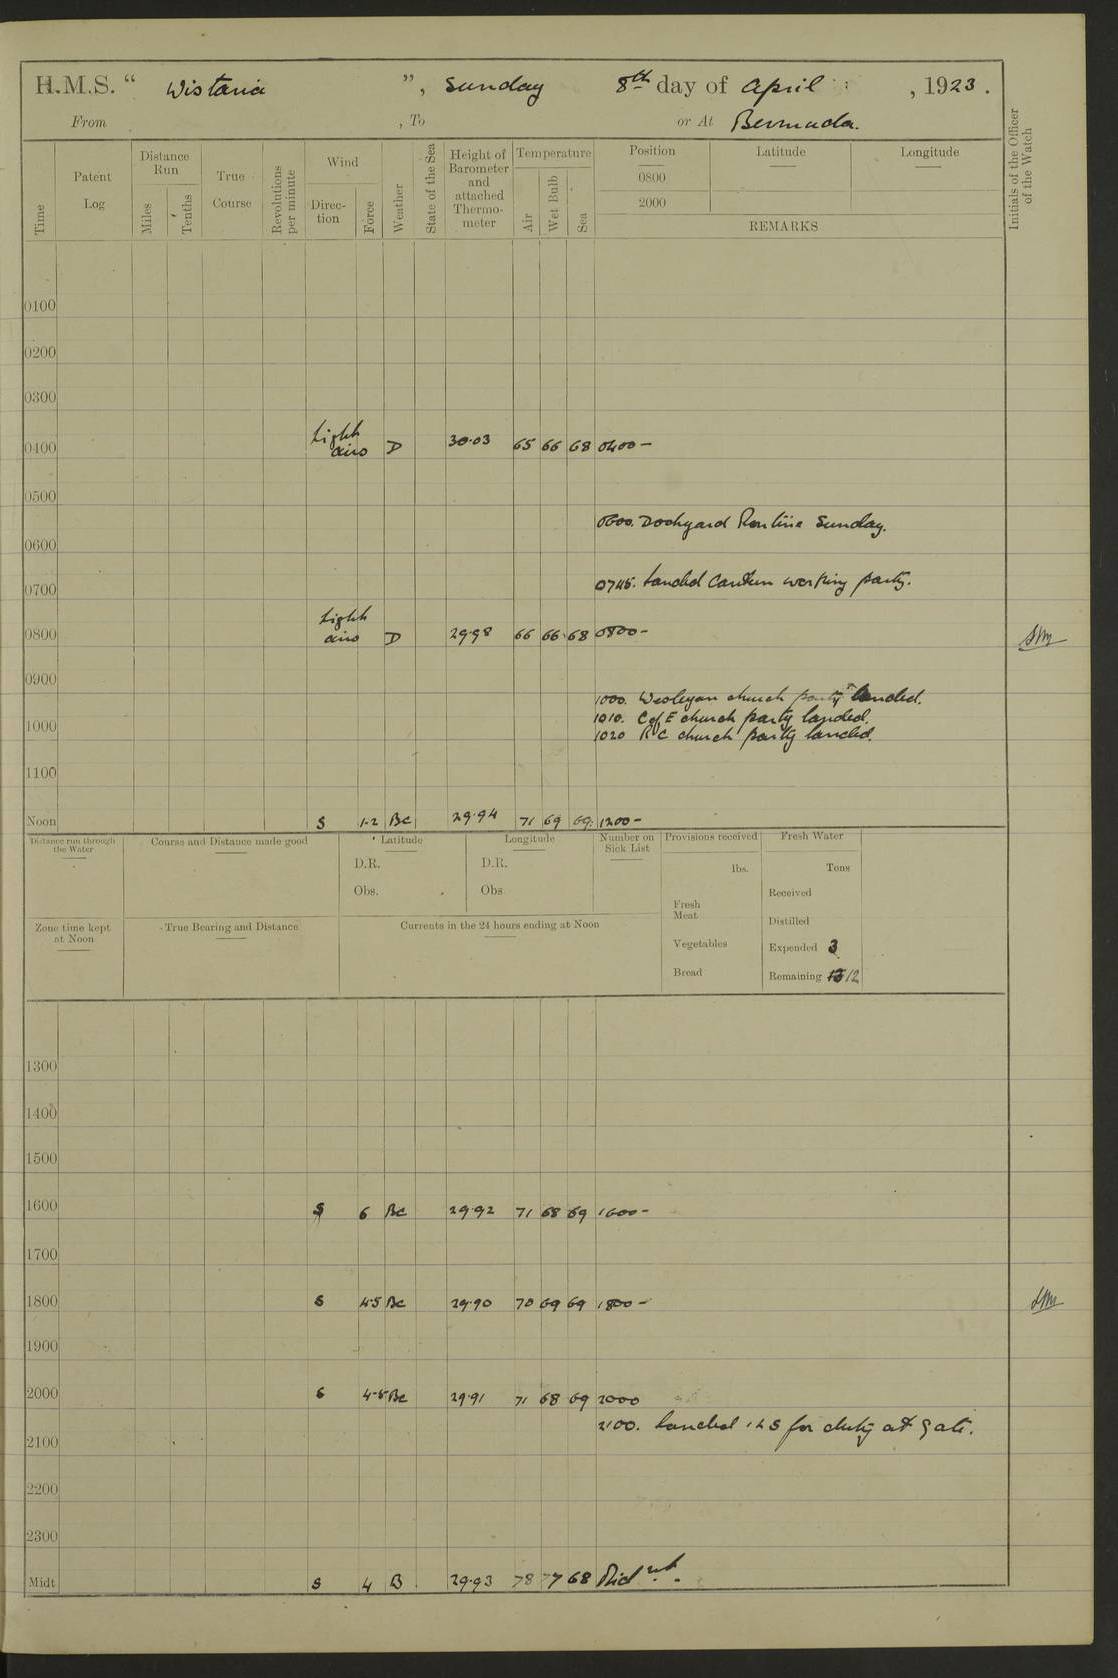 H.M.S. “ Wistaria ”, Sunday 8th day of April , 1923.
From , To or At Bermuda.
Time
Patent Log
Distance Run
Miles
Tenths
True Course
Revolutions per minute
Wind
Direction
Force
Weather
State of the Sea
Height of Barometer and attached Thermometer
Temperature
Air
Wet Bulb
Sea
Position
0800
2000
Latitude
Longitude
REMARKS
Initials of the Officer of the Watch
0100
0200
0300
0400 Light airs D 30.03 65 66 68 0400 -
0500
0600. Dockyard Routine Sunday.
0600
0745. Landed Canteen working party.
0700
0800 Light airs D 29.98 66 66 68 0800 -
0900
1000. Wesleyan church party landed.
1010. C of E church party landed.
1000
1020 R C church party landed.
1100
Noon S 1-2 Bc 29.94 71 69 69 1200 -
Distance run through the Water
Course and Distance made good
Latitude
D.R.
Obs.
Longitude
D.R.
Obs
Number on Sick List
Provisions received
lbs.
Fresh Meat
Vegetables
Bread
Fresh Water
Tons
Received
Distilled
Expended 3
Remaining 12
Zone time kept at Noon
True Bearing and Distance
Currents in the 24 hours ending at Noon
1300
1400
1500
1600 S 6 Bc 29.92 71 68 69 1600 -
1700
1800 S 4-5 Bc 29.90 70 69 69 1800 -
1900
2000 S 4-5 Bc 29.91 71 68 69 2000
2100. Landed 1 LS for duty at gate.
2100
2200
2300
Midt S 4 B 29.93 78 77 68 Midnt.